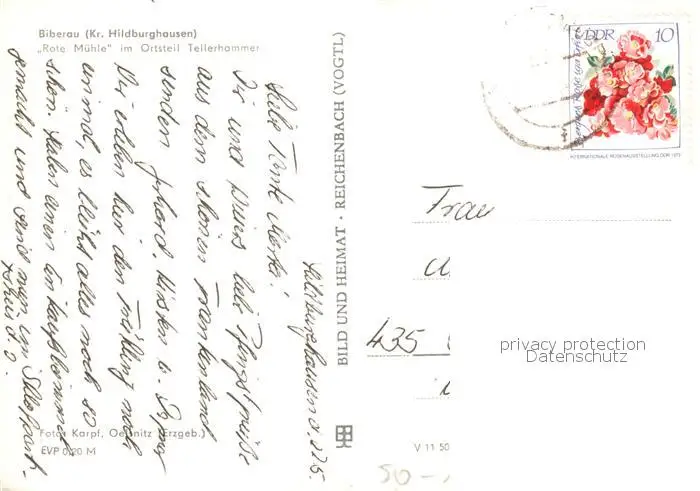 Biberau (Kr. Hildburghausen)
„Rote Mühle" im Ortsteil Tellerhammer
Hildburghausen d. 22.5.
Liebe Tante
Dir und liebe Pfingstgrüße
aus dem schönen Frankenland
senden Gerhard, Kirsten u.
Wir erleben hier den Frühling noch
einmal, es blüht alles noch so
schön. Haben einen Einkaufsbummel
gemacht und sind nun im
Foto: Karpf, Oelsnitz (Erzgeb.)
EVP 0,20 M
BILD UND HEIMAT · REICHENBACH (VOGTL)
V 11 50
DDR 10
INTERNATIONALE ROSENAUSSTELLUNG DDR 1972
Frau
435
50-
privacy protection
Datenschutz